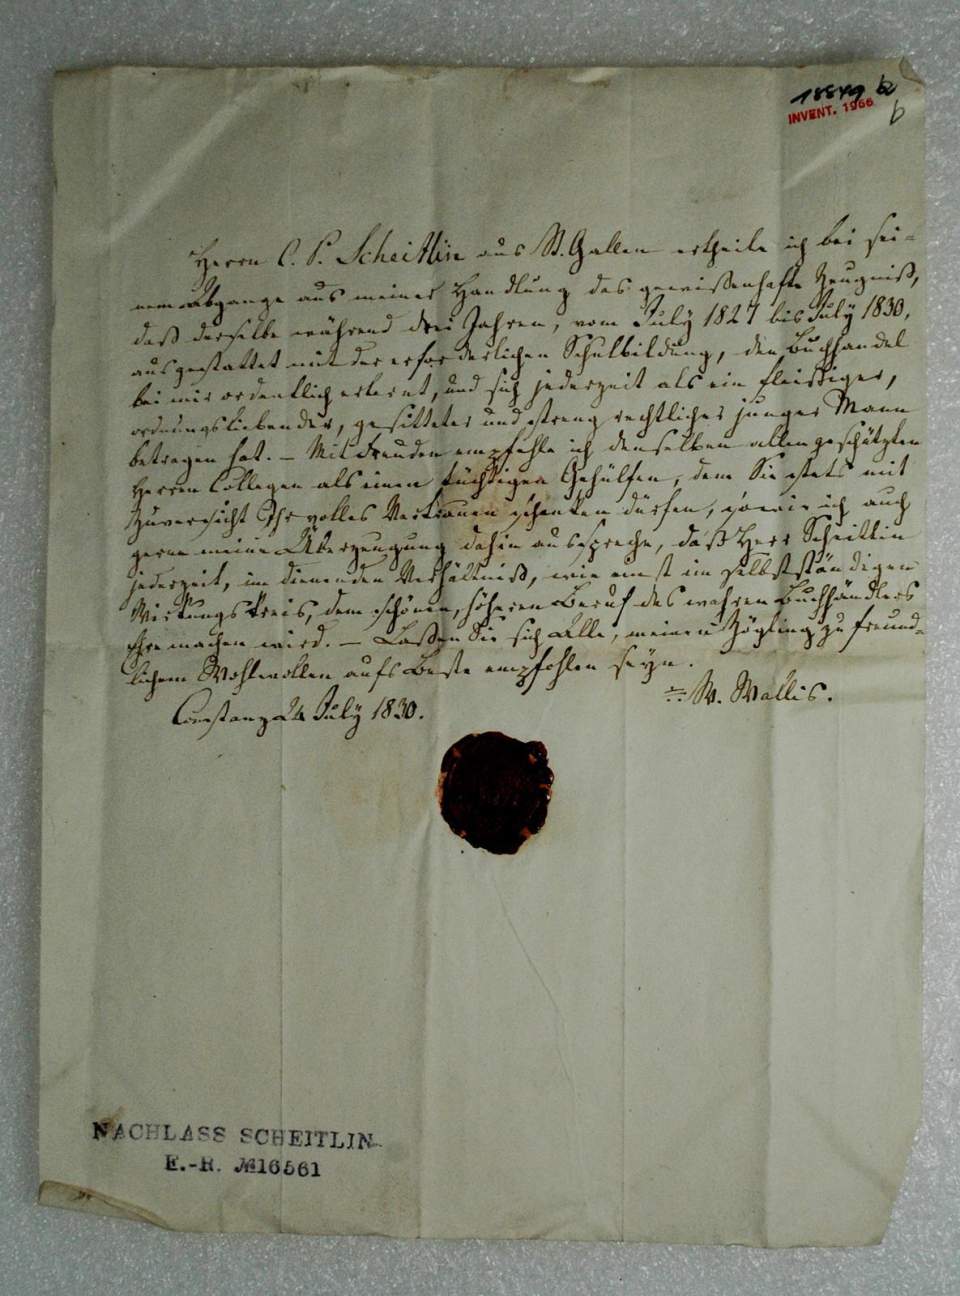 18849 b2
INVENT. 1966
b
Herrn C. P. Scheitlin aus St. Gallen ertheile ich bei sei=
nem Abgange aus meiner Handlung das gewissenhafte Zeugniß,
daß derselbe während drei Jahren, vom July 1827 bis July 1830,
ausgestattet mit der erforderlichen Schulbildung, den Buchhandel
bei mir ordentlich erlernt, und sich jederzeit als ein fleissiger,
ordnungsliebender, gesitteter und streng rechtlicher junger Mann
betragen hat. — Mit Freuden empfehle ich denselben allen geschätzten
Herren Collegen als einen tüchtigen Gehülfen, dem Sie stets mit
Zuversicht Ihr volles Vertrauen schenken dürfen, sowie ich auch
gerne meine Überzeugung dahin ausspreche, daß Herr Scheitlin
jederzeit, im dienenden Verhältniß, wie einst im selbstständigen
Wirkungskreis, dem schönen, höheren Beruf des wahren Buchhändlers
Ehre machen wird. — Laßen Sie sich Alle, meinen Zögling zu freund=
lichem Wohlwollen aufs Beste empfohlen seyn.
W. Wallis.
Constanz 24 July 1830.
NACHLASS SCHEITLIN
E.-R. №16561